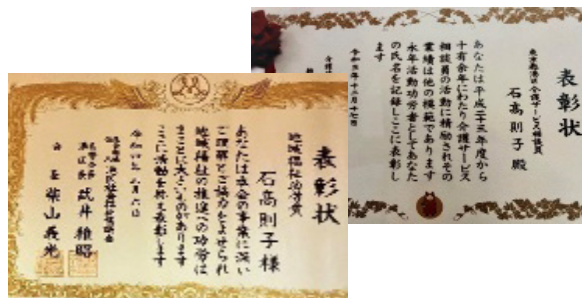 表彰状
東京都港区介護サービス相談員
石高則子殿
あなたは平成二十三年度から
十有余年にわたり介護サービス
相談員の活動に精励されその
業績は他の模範であります
永年活動功労者としてあなた
の氏名を記録しここに表彰し
ます
令和三年十二月十七日
表彰状
地域福祉功労賞
石高則子様
あなたは本会の事業に深い
ご理解とご協力をよせられ
地域福祉の推進への功労は
まことに大なるものがあります
ここに感謝の
を表彰します
名誉会長
港区長 武井雅昭
会長